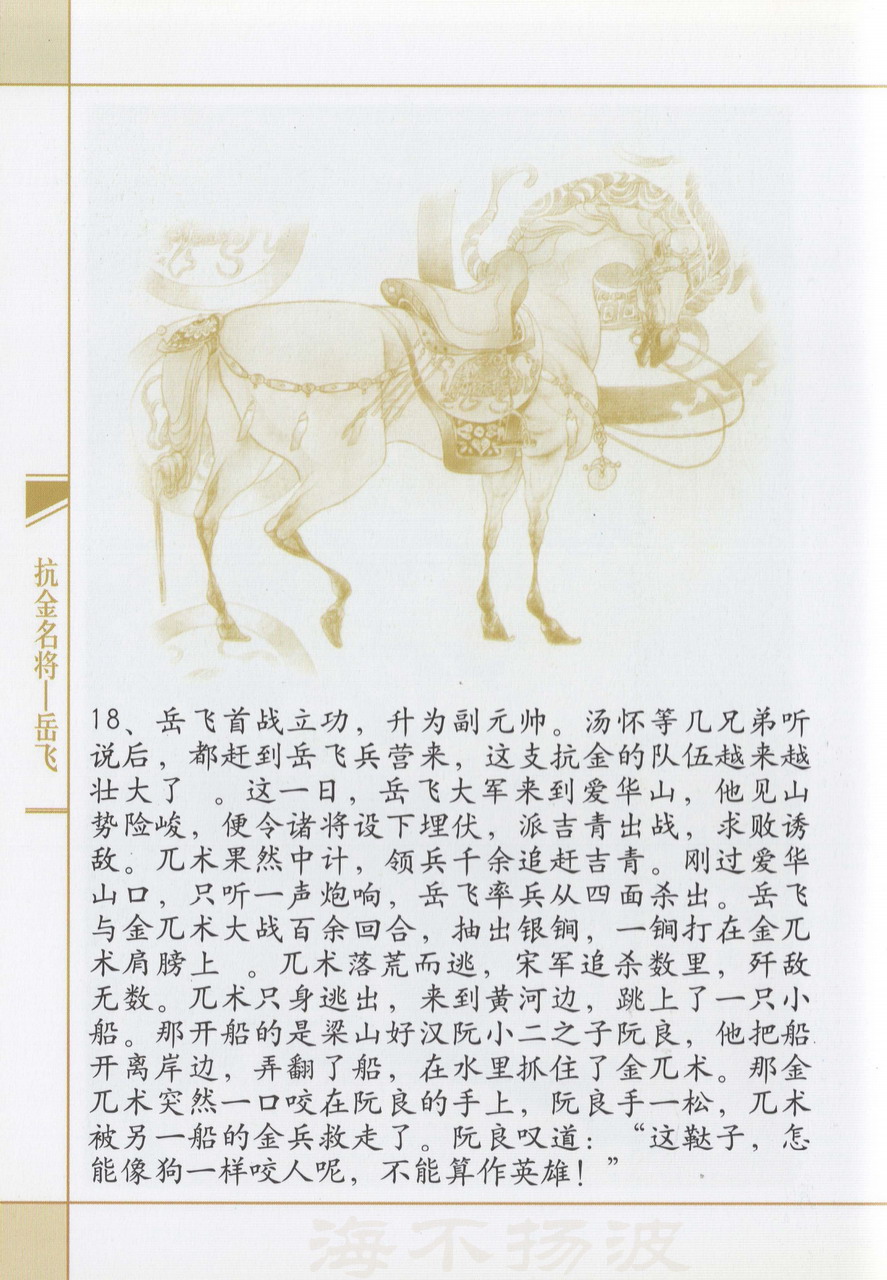 抗金名将—岳飞
18、岳飞首战立功，升为副元帅。汤怀等几兄弟听
说后，都赶到岳飞兵营来，这支抗金的队伍越来越
壮大了 。这一日，岳飞大军来到爱华山，他见山
势险峻，便令诸将设下埋伏，派吉青出战，求败诱
敌。兀术果然中计，领兵千余追赶吉青。刚过爱华
山口，只听一声炮响，岳飞率兵从四面杀出。岳飞
与金兀术大战百余回合，抽出银锏，一锏打在金兀
术肩膀上 。兀术落荒而逃，宋军追杀数里，歼敌
无数。兀术只身逃出，来到黄河边，跳上了一只小
船。那开船的是梁山好汉阮小二之子阮良，他把船
开离岸边，弄翻了船，在水里抓住了金兀术。那金
兀术突然一口咬在阮良的手上，阮良手一松，兀术
被另一船的金兵救走了。阮良叹道：“这鞑子，怎
能像狗一样咬人呢，不能算作英雄！”
海不扬波